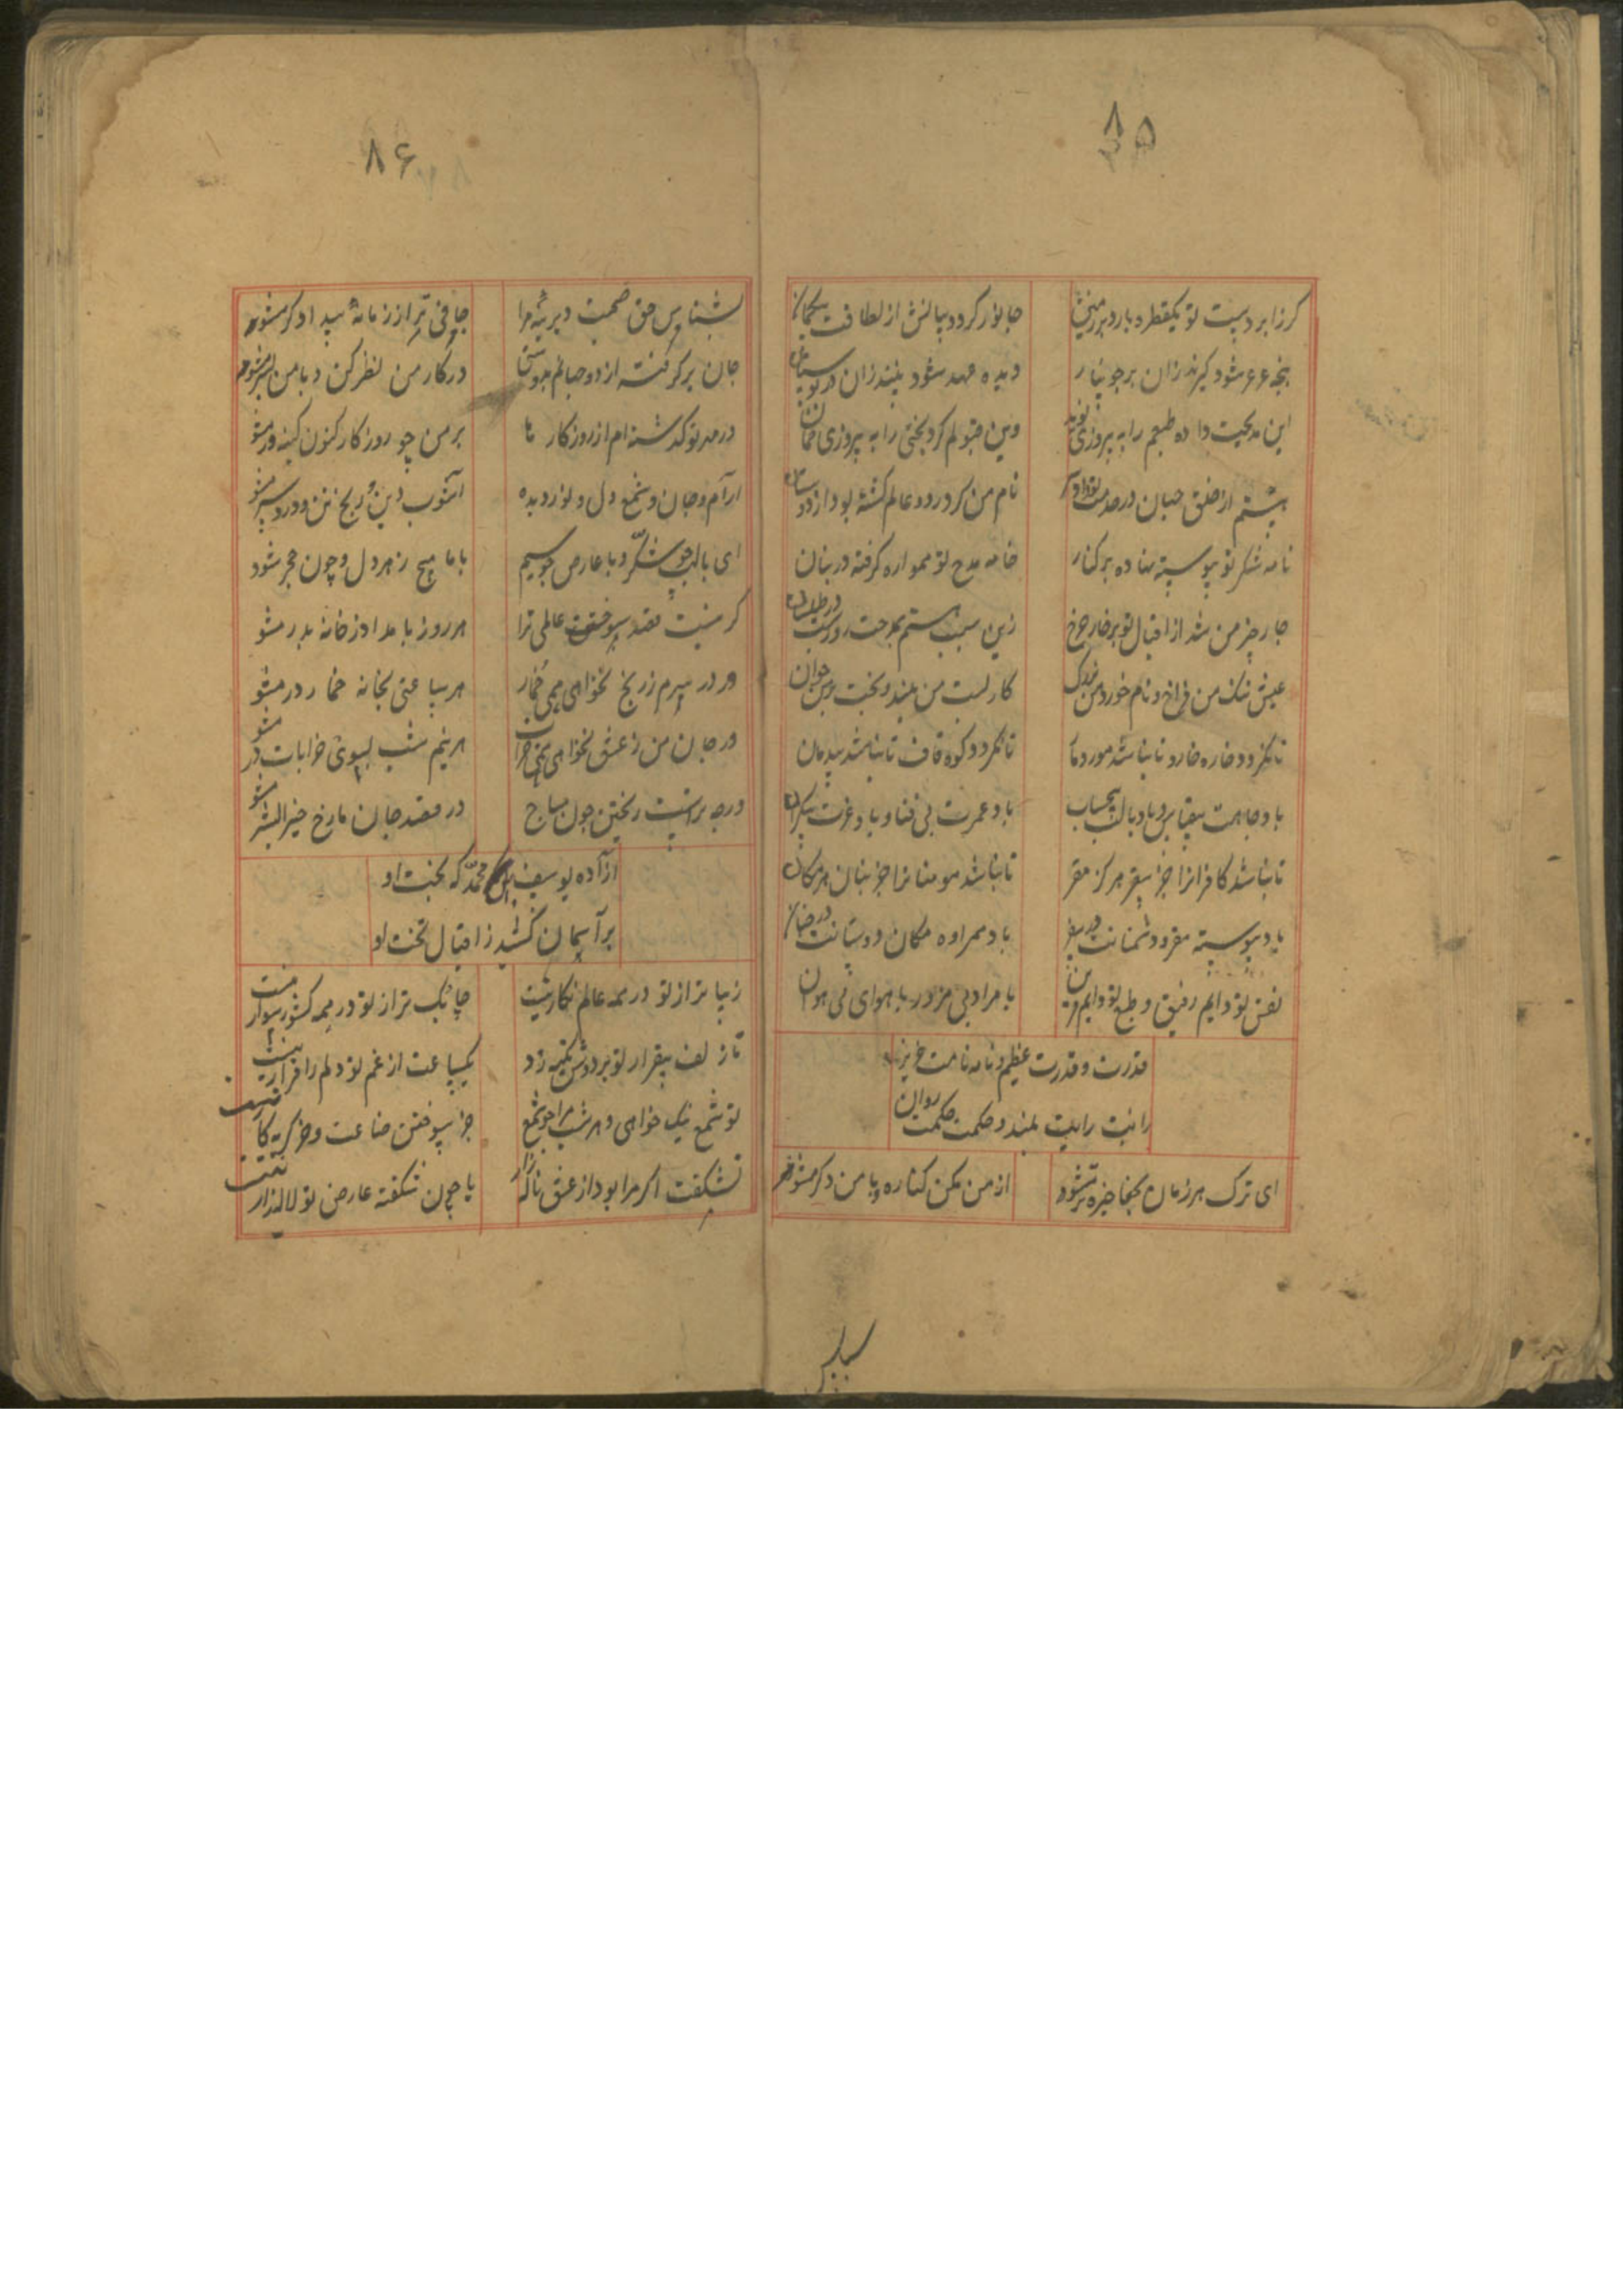 ۸۵
کرز ابر دست تو یکقطره بارد بر زمین
جانور کردد بیابانش از لطافت
پنجه شود کیرند زان بر جویبار
دیده مهد شود بینند زان در
این مدیحت داده طبعم را به پیروزی نوید
وین قبولم کرد بختی را به پیروزی ضمان
نیستم از خلق جهان در صدمت
نام من کرد در دو عالم کشته بود از
نامه شکر تو پیوسته نهاده بر کنار
خامه مدح تو همواره کرفته در بنان
چار چیز من شد از اقبال تو بر چار چرخ
زین سبب هستم بمدحت روز و شب
عیش تنک من فراخ و نام خورد من بزرک
کار پست من بلند و بخت پیر من جوان
تا نکردد خاره خار و تا نباشد مور مار
تا نکردد کوه قاف تا نباشد بید بان
باد جاهت بیقیاس و باد مالت بیحساب
باد عمرت بی فنا و باد عزت بیکران
تا نباشد کافرانرا جز سقر هرکز مقر
تا نباشد مومنانرا جز جنان هرکز مکان
باد پیوسته مقر دشمنانت در سقر
باد همراره مکان دوستانت در جنان
نفس تو دایم رفیق و طبع تو دایم قرین
با مراد بی مزور با هوای بی هوان
قدرت و قدرت عظیم و نامه نامت عزیز
رایت رایت بلند و حکمت حکمت روان
ای ترک هر زمان بجفا خیره تر مشو
از من مکن کناره و با من دکر مشو
۸۶
بشناس حق صحبت دیرینه مرا
جافی تر از زمانه بیدادکر مشو
جان برکرفته از دو جهانم بجو
در کار من نظر کن و با من بتر مشو
در مهر تو کذشته ام از روزکار ها
بر من چو روزکار کنون کینه ور مشو
آرام و جان و شمع دل و نور دیده
آشوب دین و رنج تن و درد سر مشو
ای با لب چو شکر و با عارض چو سیم
با ما هیچ زهر دل و چون حجر مشو
کر نیست قصد سوختن عالمی ترا
هر روز بامداد ز خانه بدر مشو
ور در سرم ز رنج نخواهی همی خمار
هر ساعتی بخانه خمار در مشو
ور جان من ز عشق نخواهی همی خراب
هر نیم شب بسوی خرابات در مشو
ورچه برات ریختن خون مباح
در قصد جان مادح خیر البشر مشو
آزاده یوسف بن محمد که بخت او
بر آسمان کشید ز اقبال تخت او
زیباتر از تو در همه عالم نکار نیست
چابک تر از تو در همه کشور سوار نیست
تا زلف بیقرار تو بر دوش تکیه زد
یکساعت از غم تو دلم را قرار نیست
تو شمع نیک خواهی و هر شب مرا چو شمع
جز سوختن صناعت و جز کریه کار نیست
نشکفت اکر مرا بود از عشق ناله زار
یا چون شکفته عارض تو لاله زار نیست